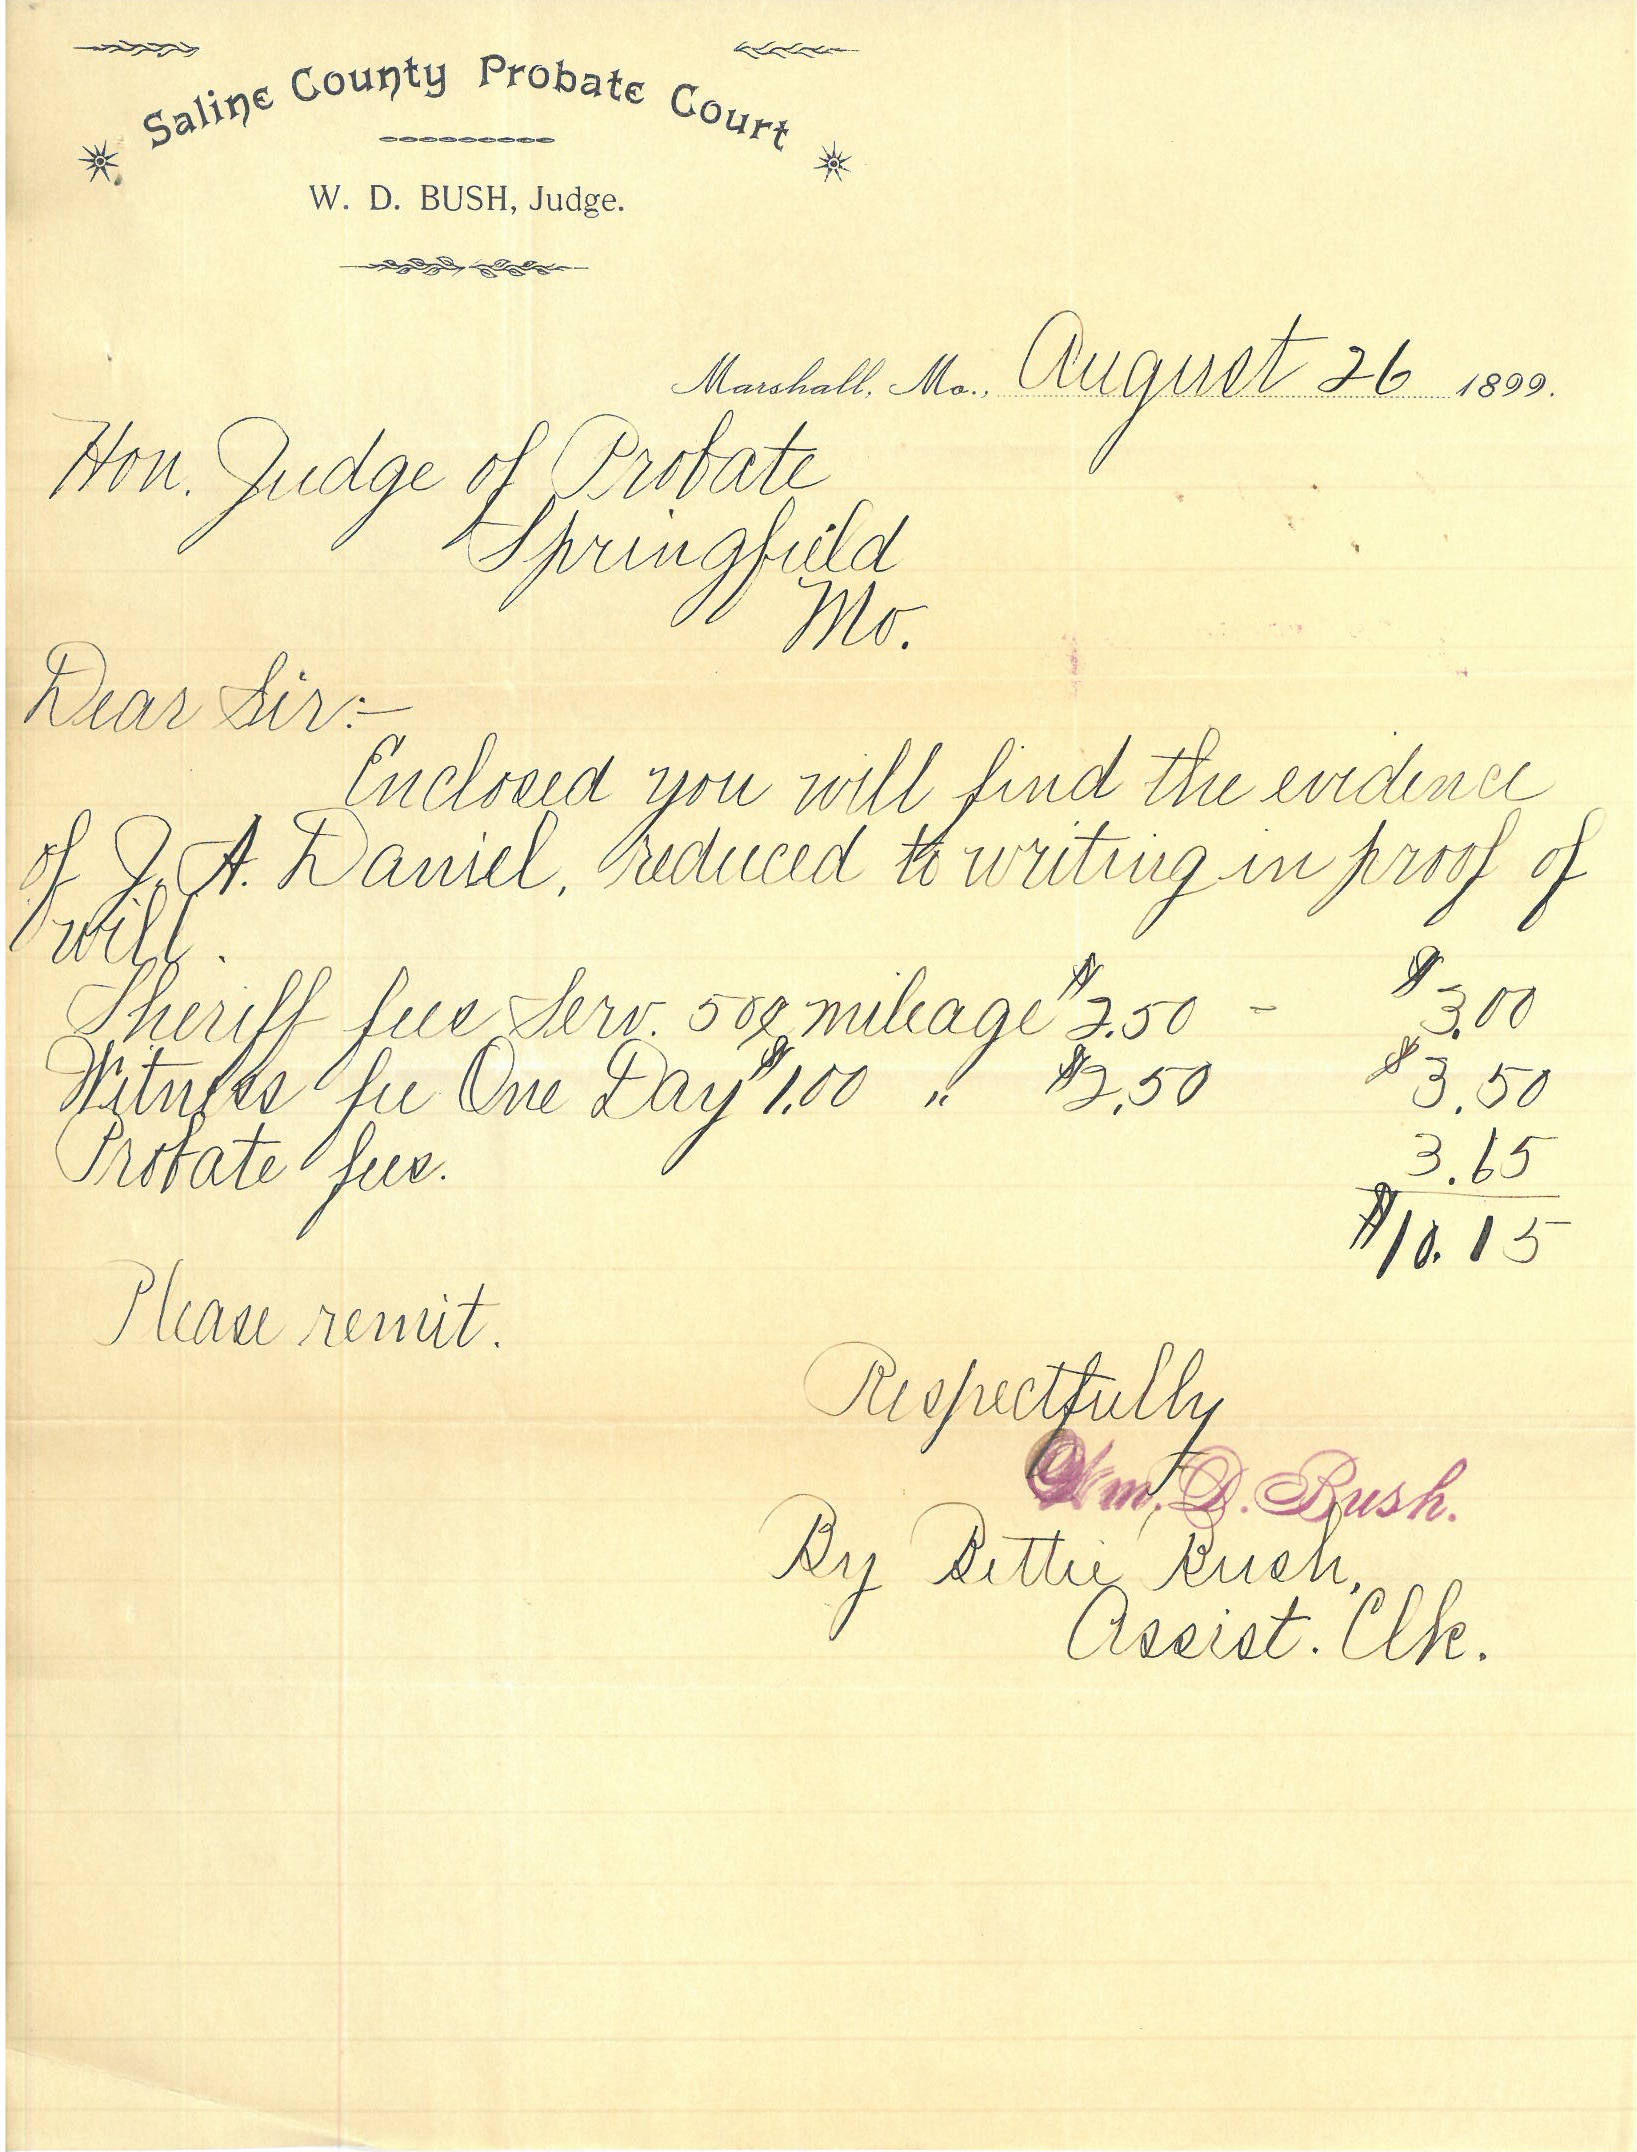 Saline County Probate Court
W. D. BUSH, Judge.
Marshall, Mo., August 26 1899.
Hon. Judge of Probate
Springfield
Mo.
Dear Sir:-
Enclosed you will find the evidence
of J. A. Daniel, reduced to writing in proof of
will.
Sheriff fees Serv. 50¢ mileage $2.50 - $3.00
Witness fee One Day $1.00 " $2.50 $3.50
Probate fees. 3.65
$10.15
Please remit.
Respectfully
Wm. D. Bush.
By Bettie Bush,
Assist. Clk.